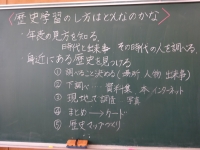 歴史学習のし方はどんなのかな
・年表の見方を知る。
時代と出来事 その時代の人を調べる
・身近にある歴史を見つける
① 調べること決める(場所 人物 出来事)
② 下調べ 資料集 本 インターネット
③ 現地で調査 写真
④ まとめ カード
⑤ 歴史マップづくり